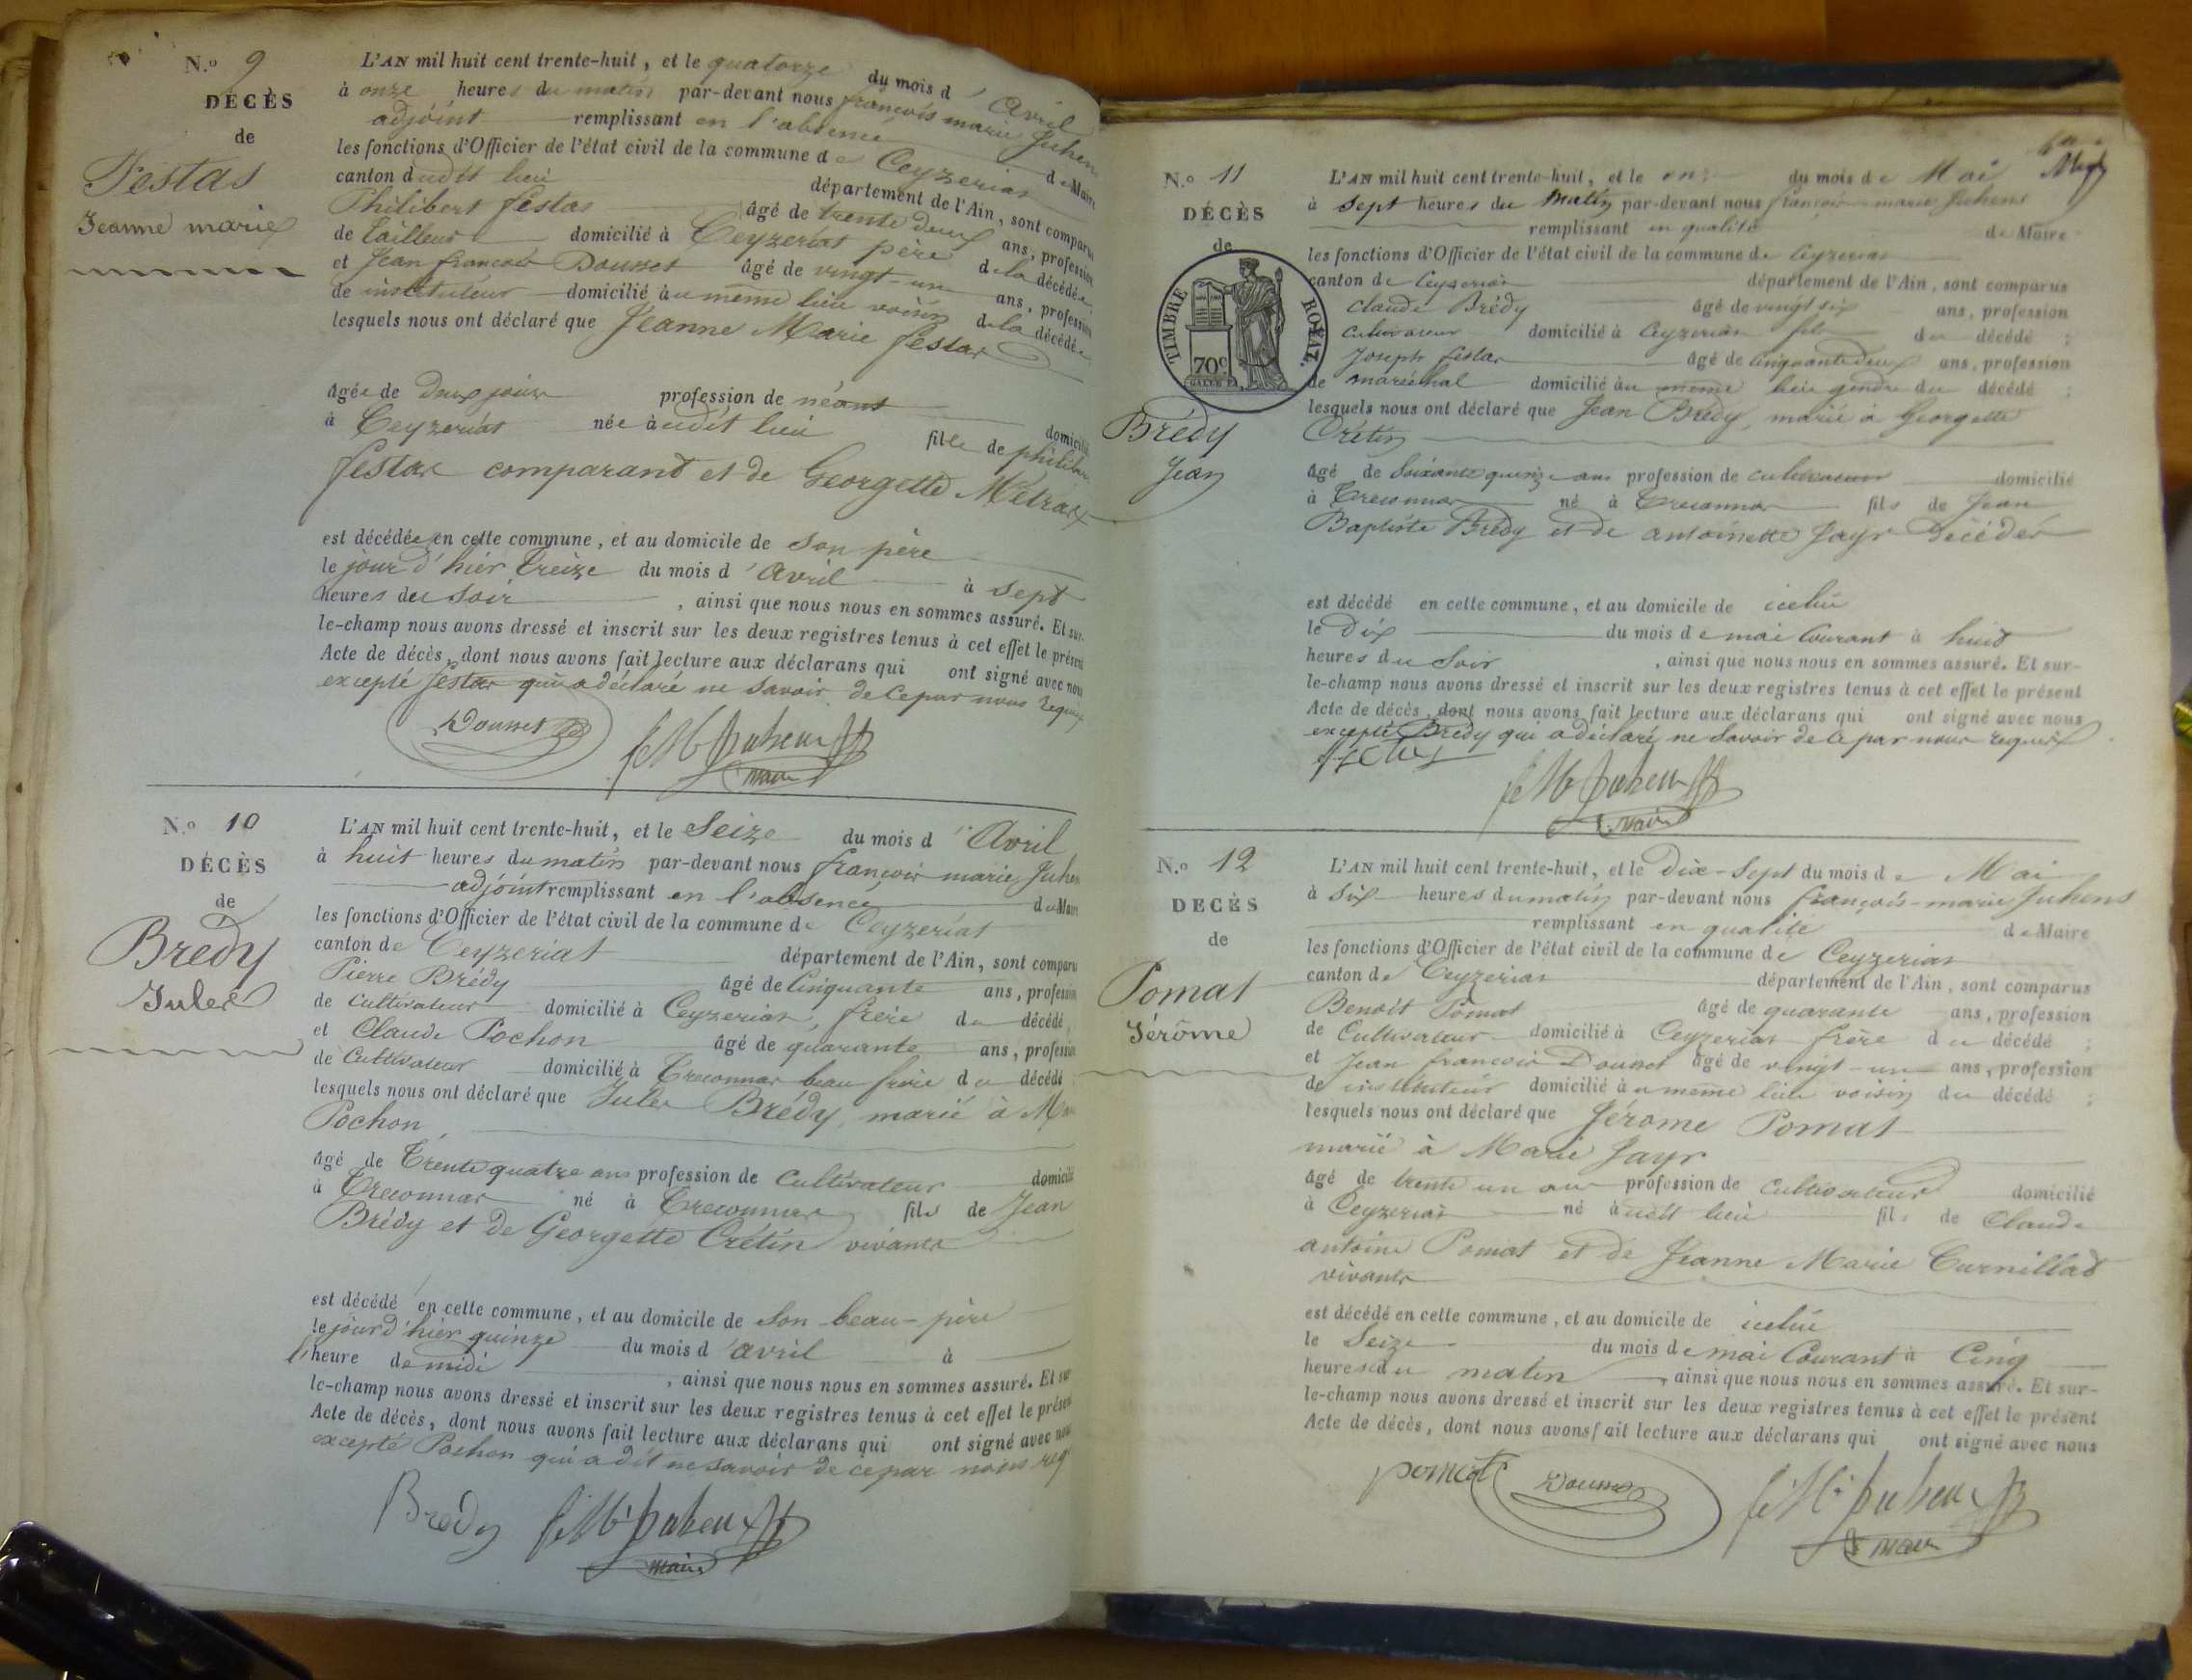 N.º 9
DÉCÈS
de
Festas
Jeanne marie
L'AN mil huit cent trente-huit, et le quatorze du mois d'Avril
à onze heures du matin par-devant nous françois marie Juhens
adjoint remplissant en l'absence de Maire
les fonctions d'Officier de l'état civil de la commune de Ceyzeriat
canton dudit lieu département de l'Ain, sont comparus
Philibert festas âgé de trente deux ans, profession
de tailleur domicilié à Ceyzeriat père de la décédée
et Jean françois Dousset âgé de vingt-un ans, profession
de instituteur domicilié au même lieu voisin de la décédée
lesquels nous ont déclaré que Jeanne Marie festas
âgée de deux jours profession de néant domicilié
à Ceyzeriat née audit lieu fille de philibert
festas comparant et de Georgette Métraux
est décédée en cette commune, et au domicile de son père
le jour d'hier treize du mois d'avril à sept
heures du soir, ainsi que nous nous en sommes assuré. Et sur-
le-champ nous avons dressé et inscrit sur les deux registres tenus à cet effet le présent
Acte de décès, dont nous avons fait lecture aux déclarans qui ont signé avec nous
excepté festas qui a déclaré ne savoir de ce par nous requis
Dousset
f M Juhens
maire
N.º 10
DÉCÈS
de
Bredy
Jules
L'AN mil huit cent trente-huit, et le Seize du mois d'Avril
à huit heures du matin par-devant nous françois marie Juhens
adjoint remplissant en l'absence du Maire
les fonctions d'Officier de l'état civil de la commune de Ceyzeriat
canton de Ceyzeriat département de l'Ain, sont comparus
Pierre Brédy âgé de Cinquante ans, profession
de cultivateur domicilié à Ceyzeriat, frère du décédé
et Claude Pochon âgé de quarante ans, profession
de Cultivateur domicilié à Treconnas beau frère du décédé
lesquels nous ont déclaré que Jules Brédy, marié à
Pochon
âgé de Trente quatre ans profession de Cultivateur domicilié
à Treconnas né à Treconnas fils de Jean
Brédy et de Georgette Crétin vivants
est décédé en cette commune, et au domicile de son beau-père
le jour d'hier quinze du mois d'avril à
l'heure de midi, ainsi que nous nous en sommes assuré. Et sur
le-champ nous avons dressé et inscrit sur les deux registres tenus à cet effet le présent
Acte de décès, dont nous avons fait lecture aux déclarans qui ont signé avec nous
excepté Pochon qui a dit ne savoir de ce par nous req
Bredy
f M Juhens
maire
N.º 11
DÉCÈS
de
TIMBRE ROYAL
70c
Brédy
Jean
L'AN mil huit cent trente-huit, et le onze du mois de Mai
à sept heures du matin par-devant nous françois-marie Juhens
remplissant en qualité de Maire
les fonctions d'Officier de l'état civil de la commune de Ceyzeriat
canton de Ceyzeriat département de l'Ain, sont comparus
Claude Brédy âgé de vingt six ans, profession
Cultivateur domicilié à Ceyzeriat fils du décédé ;
Joseph festas âgé de cinquante deux ans, profession
de maréchal domicilié au même lieu gendre du décédé ;
lesquels nous ont déclaré que Jean Brédy, marié à Georgette
Crétin
âgé de Soixante quinze ans profession de cultivateur domicilié
à Treconnas né à Treconnas fils de Jean
Baptiste Brédy et de antoinette Jayr décédés
est décédé en cette commune, et au domicile de icelui
le Dix du mois de mai Courant à huit
heures du Soir, ainsi que nous nous en sommes assuré. Et sur-
le-champ nous avons dressé et inscrit sur les deux registres tenus à cet effet le présent
Acte de décès, dont nous avons fait lecture aux déclarans qui ont signé avec nous
excepté Brédy qui a déclaré ne savoir de ce par nous requis
f M Juhens
maire
N.º 12
DÉCÈS
de
Pomat
Jérôme
L'AN mil huit cent trente-huit, et le Dix-Sept du mois de Mai
à Six heures du matin par-devant nous françois-marie Juhens
remplissant en qualité de Maire
les fonctions d'Officier de l'état civil de la commune de Ceyzeriat
canton de Ceyzeriat département de l'Ain, sont comparus
Benoit Pomat âgé de quarante ans, profession
de Cultivateur domicilié à Ceyzeriat frère du décédé ;
et Jean françois Dousset âgé de vingt-un ans, profession
de instituteur domicilié au même lieu voisin du décédé ;
lesquels nous ont déclaré que Jérome Pomat
marié à Marie Jayr
âgé de trente un ans profession de Cultivateur domicilié
à Ceyzeriat né audit lieu fils de Claude
antoine Pomat et de Jeanne Marie Curnillat
vivants
est décédé en cette commune, et au domicile de icelui
le Seize du mois de mai Courant à Cinq
heures du matin, ainsi que nous nous en sommes assuré. Et sur-
le-champ nous avons dressé et inscrit sur les deux registres tenus à cet effet le présent
Acte de décès, dont nous avons fait lecture aux déclarans qui ont signé avec nous
pomat
Dousset
f M Juhens
maire